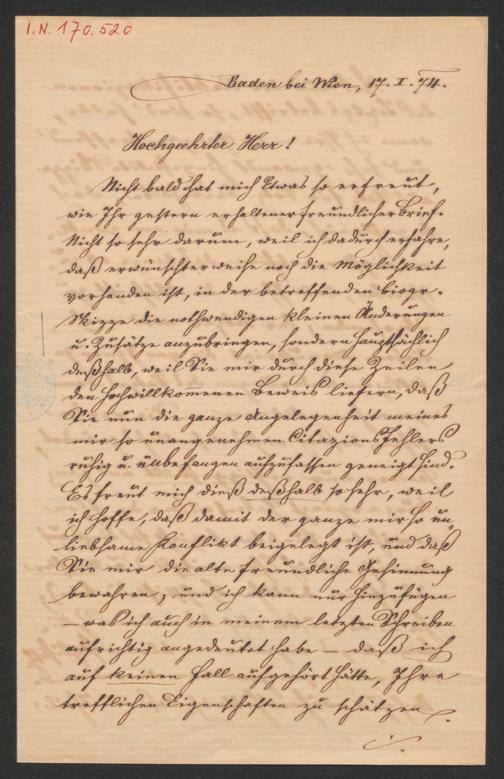 I.N. 170.520
Baden bei Wien, 17. I. 74.
Hochgeehrter Herr!
Nicht bald hat mich Etwas so erfreut,
wie Ihr gestern erhaltener freundlicher Brief.
Nicht so sehr darum, weil ich dadurch erfahre,
daß erwünschter weise noch die Möglichkeit
vorhanden ist, in der betreffenden biogr.
Skizze die nothwendigen kleinen Änderungen
u. Zusätze anzubringen, sondern hauptsächlich
deßhalb, weil Sie mir durch diese Zeilen
den hochwillkomenen Beweis liefern, daß
Sie nun die ganze Angelegenheit meines
mir so unangenehmen Citazionsfehlers
ruhig u. unbefangen aufzufassen geneigt sind.
Es freut mich dieß deßhalb so sehr, weil
ich hoffe, daß damit der ganze mir so un„
liebsame Konflikt beigelegt ist, und daß
Sie mir die alte freundliche Gesinnung
bewahren; und ich kann nur hinzufügen
– was ich auch in meinem letzten Schreiben
aufrichtig angedeutet habe – daß ich
auf keinen Fall aufgehört hätte, Ihre
trefflichen Eigenschaften zu schätzen